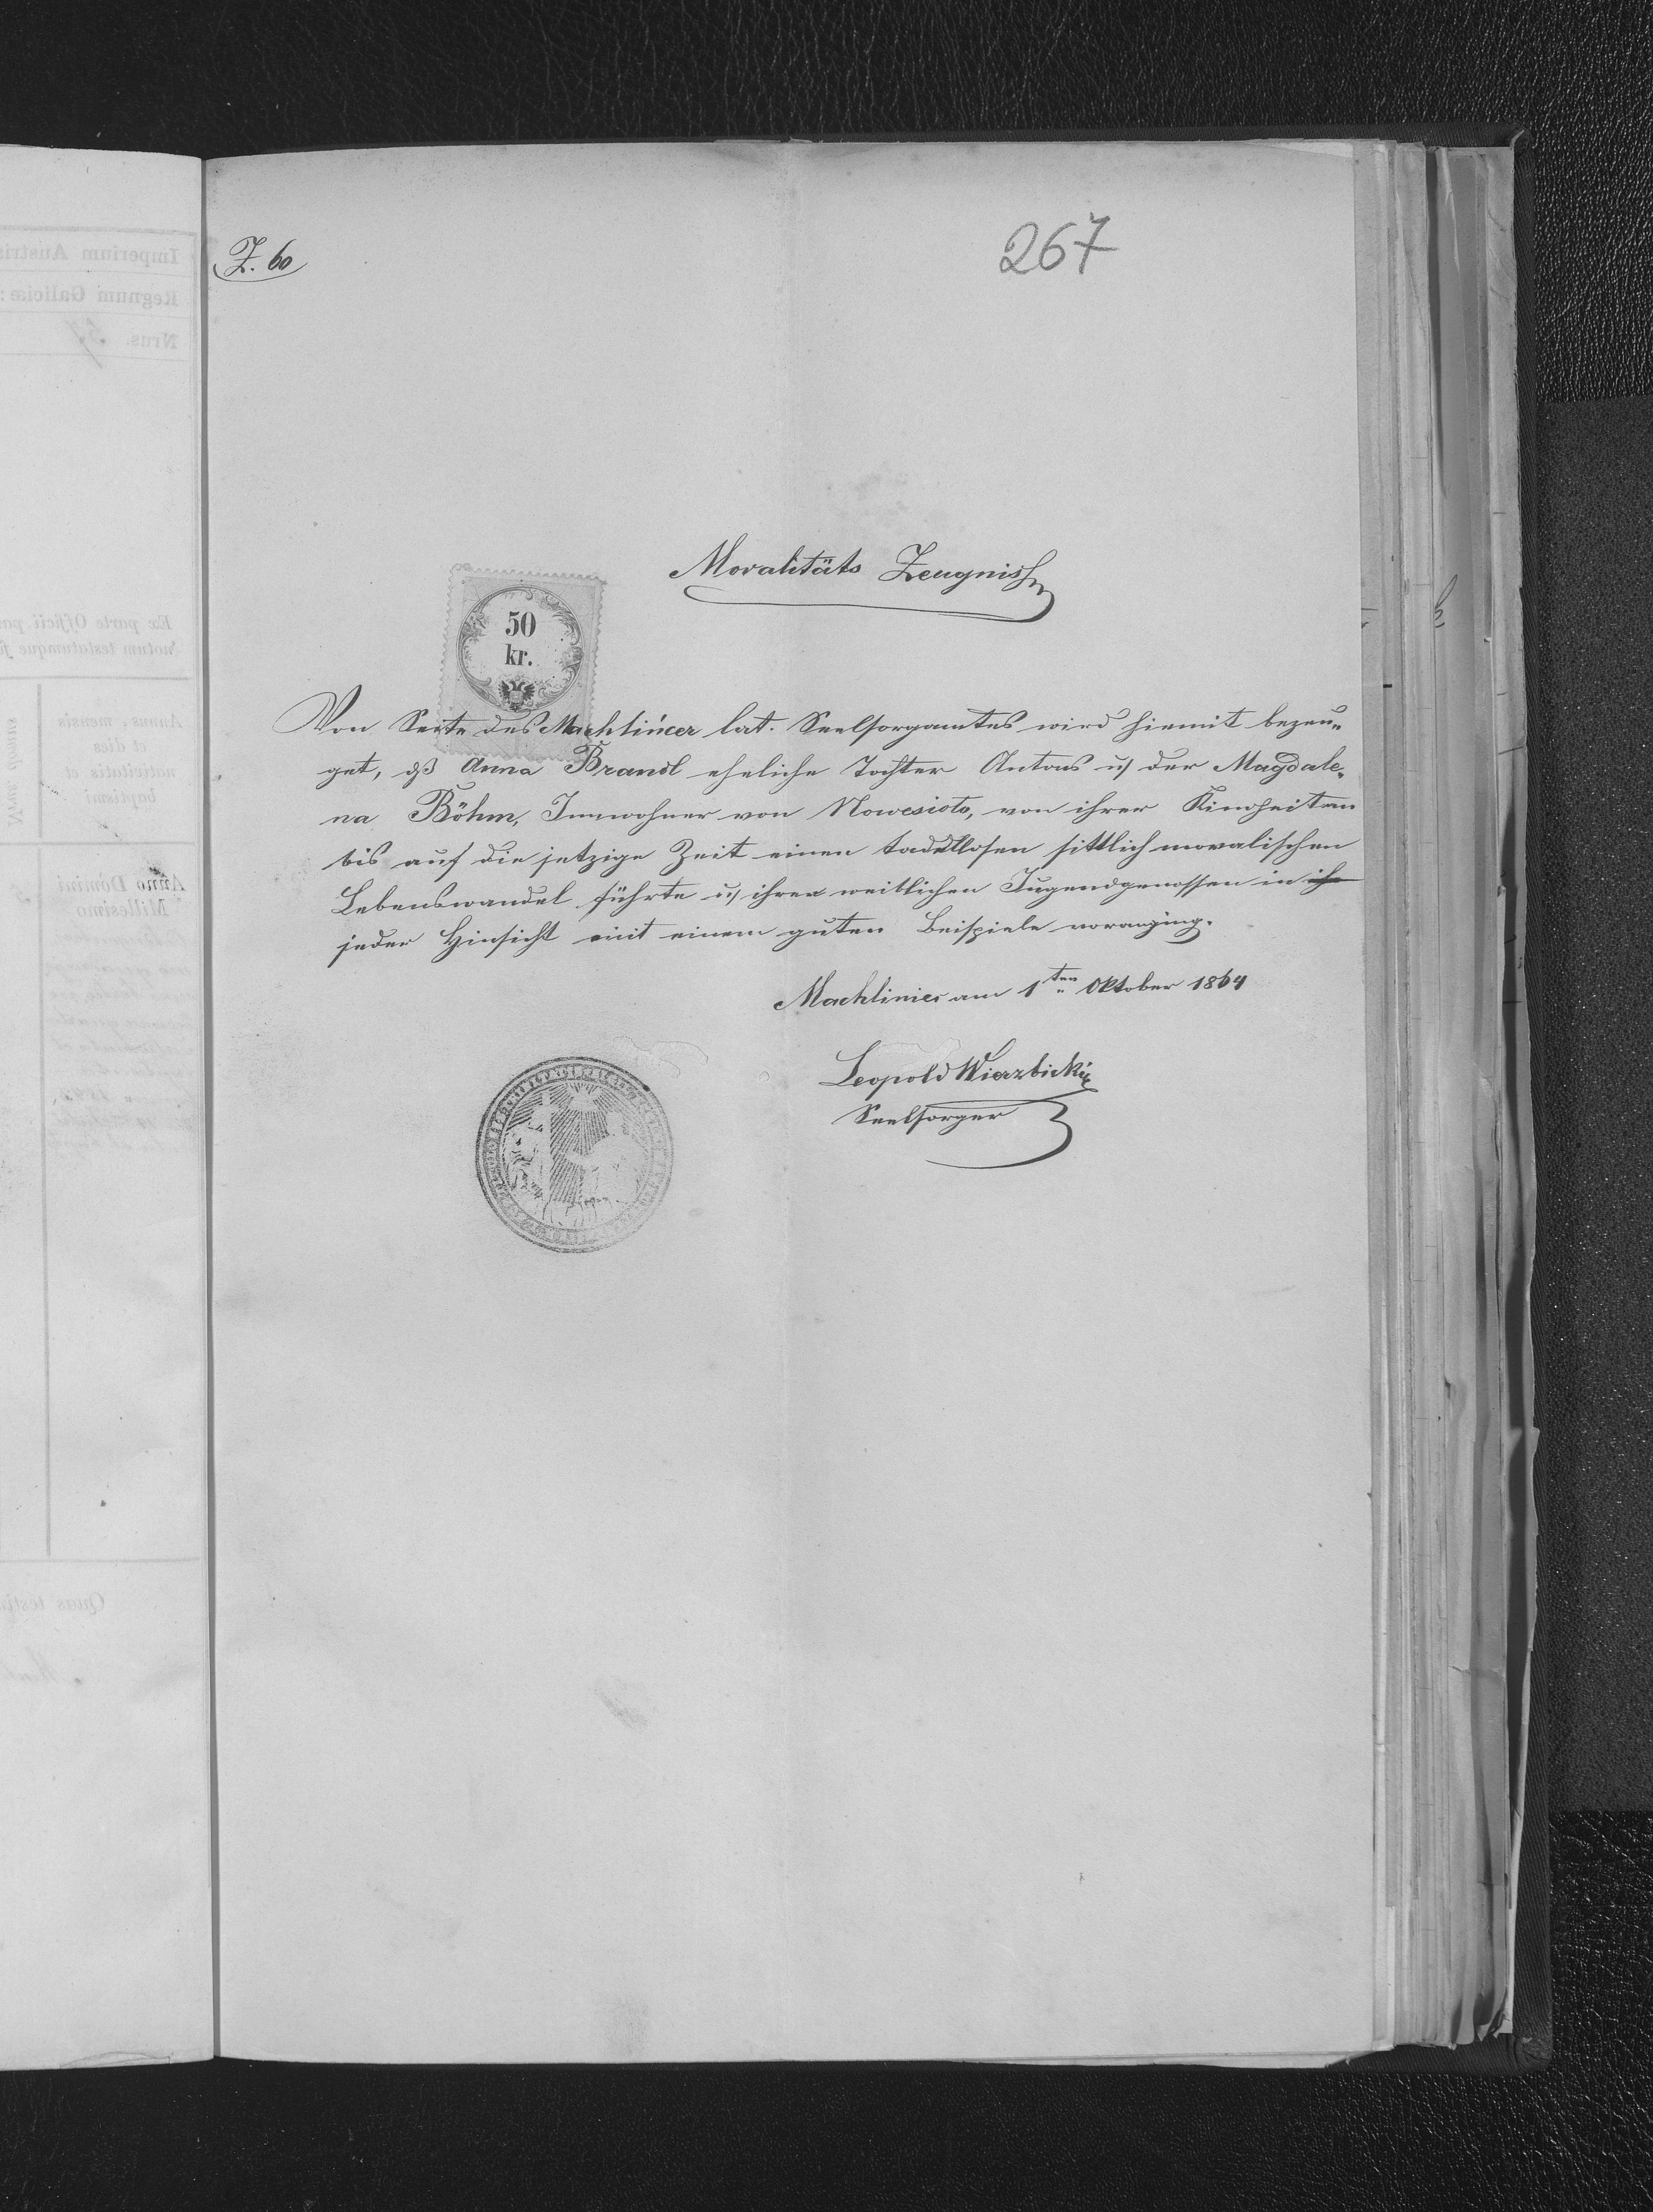 Z. 60
267
Moralitäts Zeugniss
50
kr.
Von Seite des Machlińcer lat. Seelsorgamtes wird hiemit bezeu-
get, dß Anna Brandl eheliche Tochter Antons u der Magdale-
na Böhm, Innwohner von Nowesioło, von ihrer Kindheit an
bis auf die jetzige Zeit einen tadellosen sittlich moralischen
Lebenswandel führte u ihren weiblichen Jugendgenossen in ihr
jeder Hinsicht mit einem guten Beispiele voranging.
Machliniec am 1ten Oktober 1864
Leopold Wierzbicki
Seelsorger
Imperium Austri
Regnum Galiciæ:
Nrus.
Ex parte Officii par
notum testatumque fi
Annus, mensis
et dies
nativitatis et
baptismi
Nrus domus
Anno Domini
Millesimo
Quas testi